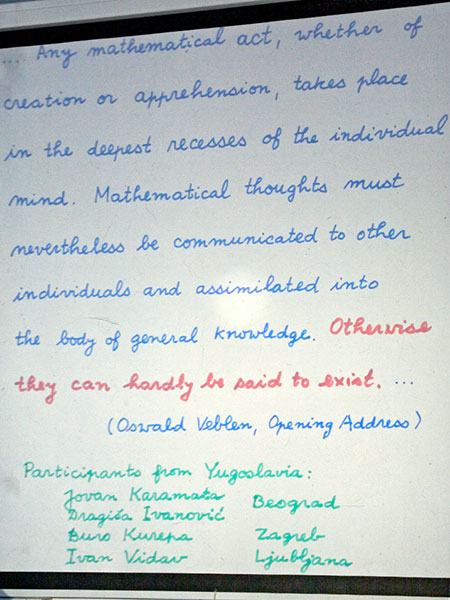 .... Any mathematical act, whether of
creation or apprehension, takes place
in the deepest recesses of the individual
mind. Mathematical thoughts must
nevertheless be communicated to other
individuals and assimilated into
the body of general knowledge. Otherwise
they can hardly be said to exist. ...
(Oswald Veblen, Opening Address)
Participants from Yugoslavia:
Jovan Karamata
Dragiša Ivanović Beograd
Đuro Kurepa Zagreb
Ivan Vidav Ljubljana